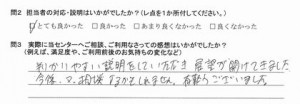 問2 担当者の対応・説明はいかがでしたか?(レ点を1か所付けてください。)
☑とても良かった □良かった □あまり良くなかった □良くなかった
問3 実際に当センターへご相談、ご利用なさっての感想はいかがですか?
(例えば、満足度や、ご利用前後のお気持ちの変化など)
わかりやすい説明をしていただき 展望が開けてきました
今後、又、相談するかもしれません。有難うございました。